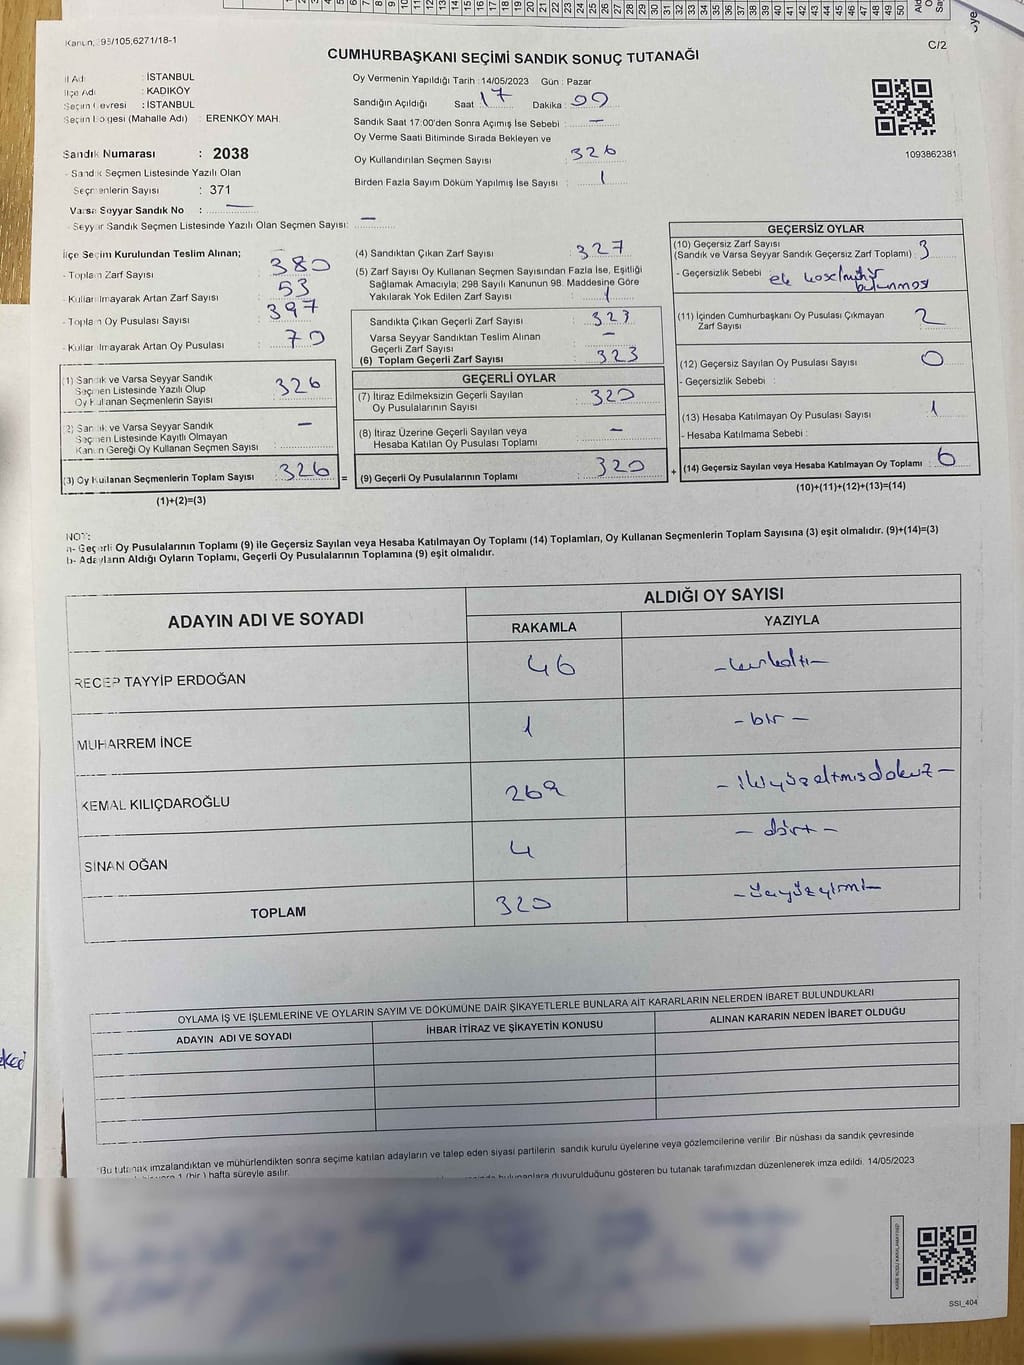 25 26 27 28 29 30 31 32 33 34 35 36 37 38 39 40 41 42 43 44 45 46 47 48 49 50
Kanun, 95/105,6271/18-1
C/2
CUMHURBAŞKANI SEÇİMİ SANDIK SONUÇ TUTANAĞI
İl Adı : İSTANBUL
İlçe Adı : KADIKÖY
Seçim Çevresi : İSTANBUL
Seçim Bölgesi (Mahalle Adı) : ERENKÖY MAH.
Oy Vermenin Yapıldığı Tarih : 14/05/2023 Gün : Pazar
Sandığın Açıldığı Saat : 17 Dakika : 00
Sandık Saat 17:00'den Sonra Açımış İse Sebebi : —
Oy Verme Saati Bitiminde Sırada Bekleyen ve
Oy Kullandırılan Seçmen Sayısı : 326
Birden Fazla Sayım Döküm Yapılmış İse Sayısı : 1
1093862381
Sandık Numarası : 2038
- Sandık Seçmen Listesinde Yazılı Olan
Seçmenlerin Sayısı : 371
Varsa Seyyar Sandık No : —
- Seyyar Sandık Seçmen Listesinde Yazılı Olan Seçmen Sayısı: —
İlçe Seçim Kurulundan Teslim Alınan;
- Toplam Zarf Sayısı : 380
- Kullanılmayarak Artan Zarf Sayısı : 53
- Toplam Oy Pusulası Sayısı : 397
- Kullanılmayarak Artan Oy Pusulası : 70
(1) Sandık ve Varsa Seyyar Sandık
Seçmen Listesinde Yazılı Olup
Oy Kullanan Seçmenlerin Sayısı : 326
(2) Sandık ve Varsa Seyyar Sandık
Seçmen Listesinde Kayıtlı Olmayan
Kanun Gereği Oy Kullanan Seçmen Sayısı : —
(3) Oy Kullanan Seçmenlerin Toplam Sayısı : 326 =
(1)+(2)=(3)
(4) Sandıktan Çıkan Zarf Sayısı : 327
(5) Zarf Sayısı Oy Kullanan Seçmen Sayısından Fazla İse, Eşitliği
Sağlamak Amacıyla; 298 Sayılı Kanunun 98. Maddesine Göre
Yakılarak Yok Edilen Zarf Sayısı : 1
Sandıkta Çıkan Geçerli Zarf Sayısı : 323
Varsa Seyyar Sandıktan Teslim Alınan
Geçerli Zarf Sayısı : —
(6) Toplam Geçerli Zarf Sayısı : 323
GEÇERLİ OYLAR
(7) İtiraz Edilmeksizin Geçerli Sayılan
Oy Pusulalarının Sayısı : 320
(8) İtiraz Üzerine Geçerli Sayılan veya
Hesaba Katılan Oy Pusulası Toplamı : —
(9) Geçerli Oy Pusulalarının Toplamı : 320 +
GEÇERSİZ OYLAR
(10) Geçersiz Zarf Sayısı
(Sandık ve Varsa Seyyar Sandık Geçersiz Zarf Toplamı) : 3
- Geçersizlik Sebebi :
bulunması
(11) İçinden Cumhurbaşkanı Oy Pusulası Çıkmayan
Zarf Sayısı : 2
(12) Geçersiz Sayılan Oy Pusulası Sayısı : 0
- Geçersizlik Sebebi :
(13) Hesaba Katılmayan Oy Pusulası Sayısı : 1
- Hesaba Katılmama Sebebi :
(14) Geçersiz Sayılan veya Hesaba Katılmayan Oy Toplamı : 6
(10)+(11)+(12)+(13)=(14)
NOT:
a- Geçerli Oy Pusulalarının Toplamı (9) ile Geçersiz Sayılan veya Hesaba Katılmayan Oy Toplamı (14) Toplamları, Oy Kullanan Seçmenlerin Toplam Sayısına (3) eşit olmalıdır. (9)+(14)=(3)
b- Adayların Aldığı Oyların Toplamı, Geçerli Oy Pusulalarının Toplamına (9) eşit olmalıdır.
ADAYIN ADI VE SOYADI
ALDIĞI OY SAYISI
RAKAMLA YAZIYLA
RECEP TAYYİP ERDOĞAN 46 -kırkaltı-
MUHARREM İNCE 1 -bir-
KEMAL KILIÇDAROĞLU 269 -ikiyüzaltmışdokuz-
SİNAN OĞAN 4 -dört-
TOPLAM 320 -üçyüzyirmi-
OYLAMA İŞ VE İŞLEMLERİNE VE OYLARIN SAYIM VE DÖKÜMÜNE DAİR ŞİKAYETLERLE BUNLARA AİT KARARLARIN NELERDEN İBARET BULUNDUKLARI
ADAYIN ADI VE SOYADI İHBAR İTİRAZ VE ŞİKAYETİN KONUSU ALINAN KARARIN NEDEN İBARET OLDUĞU
Bu tutanak imzalandıktan ve mühürlendikten sonra seçime katılan adayların ve talep eden siyasi partilerin sandık kurulu üyelerine veya gözlemcilerine verilir. Bir nüshası da sandık çevresinde
1 (bir) hafta süreyle asılır.
bulunanlara duyurulduğunu gösteren bu tutanak tarafımızdan düzenlenerek imza edildi. 14/05/2023
SSI_404